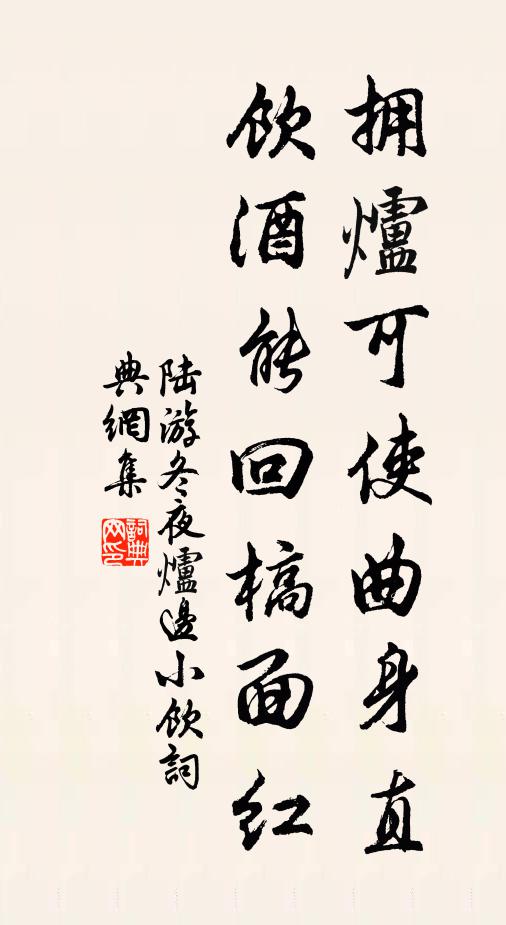 拥爐可使曲身直
飲酒能回槁面紅
陆游冬夜爐邊小飲詞
典網集
詞典网印